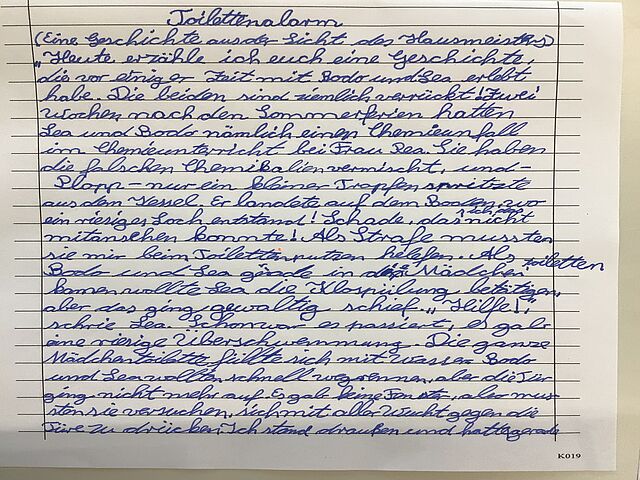 Toilettenalarm
(Eine Geschichte aus der Sicht des Hausmeisters)
"Heute erzähle ich euch eine Geschichte,
die vor einiger Zeit mit Bodo und Lea erlebt
habe. Die beiden sind ziemlich verrückt! Zwei
Wochen nach den Sommerferien hatten
Lea und Bodo nämlich einen Chemieunfall
im Chemieunterricht bei Frau Rea. Sie haben
die falschen Chemikalien vermischt, und -
Plopp - nur ein kleiner Tropfen spritzte
aus dem Kessel. Er landete auf dem Boden, wo
ein riesiges Loch entstand! Schade, dass ich das nicht
mitansehen konnte! Als Strafe mussten
sie mir beim Toilettenputzen helfen. Als
Bodo und Lea gerade in die Mädchentoiletten
kamen wollte Lea die Klospülung betätigen,
aber das ging gewaltig schief. "Hilfe!",
schrie Lea. Schon war es passiert, es gab
eine riesige Überschwemmung. Die ganze
Mädchentoilette füllte sich mit Wasser. Bodo
und Lea wollten schnell wegrennen, aber die Tür
ging nicht mehr auf. Es gab keine Fenster, also mus-
sten sie versuchen, sich mit aller Wucht gegen die
Türe zu drücken. Ich stand draußen und hatte gerade
K019